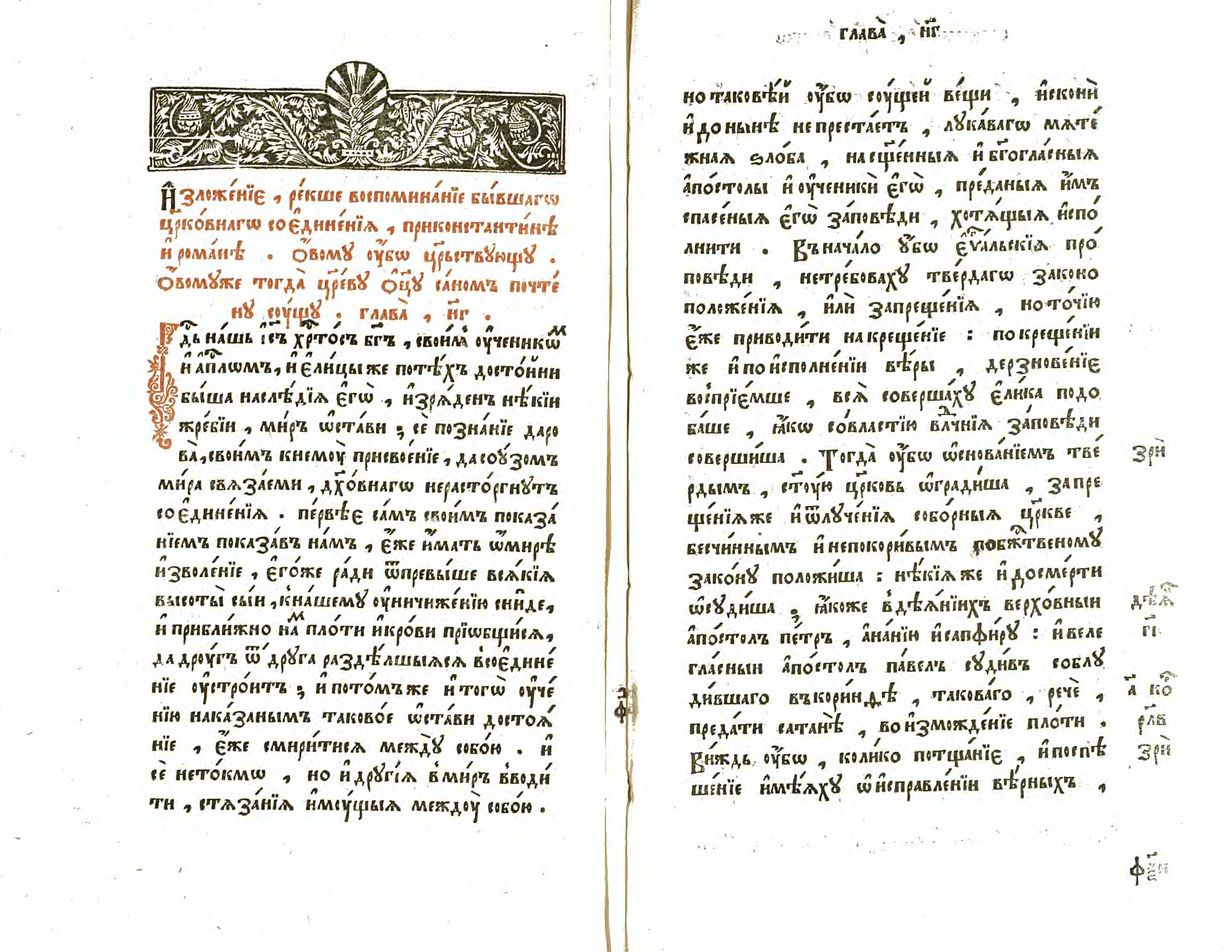 И҆зложе́нїе , ре́кше воспомина́нїе бы́вшагѡ
цр҃ко́внагѡ соедине́нїѧ , приконстанти́нѣ
и҆ рома́нѣ . ѻ҆вому ᲂу҆́бѡ цр҃ьствующꙋ .
ѻ҆́вомуже тогда̀ цр҃е́вꙋ ѻ҆ц҃ꙋ са́номъ почте́
нꙋ сᲂу́щꙋ . глава̀ , н҃г .
Гд҇ь на́шь і҆с҃ъ хр҇то́съ бг҃ъ , свои́мъ ᲂу҆ченикѡ́м
и҆ а҆п҇лѡмъ , и҆ є҆ли́цы же потѣ́хъ досто́йни
бы́ша наслѣ́дїѧ є҆гѡ̀ , и҆зрѧ́денъ нѣ́кїи
жре́бїи , ми́ръ ѡ҆ста́ви ; се́ позна́нїе даро
ва̀ , свои́мъ кнемᲂу̀ присвое́нїе , дасᲂу́зомъ
ми́ра свѧ́заеми , дх҃о́внагѡ нерасто́ргнутъ
соедине́нїѧ . пе́рвѣе са́мъ свои́мъ показа́
нїемъ показа́въ на́мъ , є҆́же и҆́мать ѡ҆мирѣ
и҆зволе́нїе , є҆гѡ́же ради ѿпревы́ше всѧ́кїѧ
высоты̀ сы́и , кна́шему ᲂу҆ничиже́нїю сни́де ,
и҆ прибли́жно на́м пло́ти и҆кро́ви прїѡбщи́сѧ ,
да дрᲂу́гъ ѿ дрꙋга раздѣ́лшыѧсѧ всоедине́
нїе ᲂу҆стро́итъ ; и҆ пото́мъже и҆ тогѡ̀ ᲂу҆че́
нїю нака́занымъ таково́е ѡ҆ста́ви достоѧ́
нїе , є҆́же смири́тисѧ междꙋ̀ собо́ю . и҆
се́ нето́кмѡ , но и҆ дрꙋгі́ѧ вми́ръ вводи́
ти , стѧза́нїѧ и҆мᲂу́щыѧ междᲂу̀ собо́ю .
глава̀ , н҃г
но таковѣ́й ᲂу҆́бѡ сᲂу́щей ве́щи , и҆сконѝ
и҆ до ны́нѣ непреста́етъ , лꙋка́вагѡ мѧте́
жнаѧ ѕло́ба , насщ҃е́нныѧ и҆ бг҃огла́сныѧ
а҆по́столы и҆ ᲂу҆ченикѝ є҆гѡ̀ , пре́даныѧ и҆́мъ
спасе́ныѧ є҆гѡ̀ за́повѣди , хотѧ́щыѧ и҆спо́
лнити . Въ нача́ло ᲂу҆́бѡ є҆ѵ҃а́льскїѧ про́
повѣди , нетре́боваху тве́рдагѡ зако́но
положе́нїѧ , и҆лѝ запреще́нїѧ , но то́чїю
є҆́же приводи́ти на креще́нїе : по креще́нїи
же и҆ по и҆сполне́нїи вѣ́ры , дерзнове́нїе
воспрїе́мше , всѧ̀ соверша́ху є҆ли́ка подо
ба́ше , ꙗ҆́кѡ со вла́стїю влⷣчнїѧ за́повѣди
соверши́ша . Тогда̀ ᲂу҆́бѡ ѡ҆снова́нїемъ тве́
рдымъ , ст҃ᲂу́ю цр҃ковь ѡ҆гради́ша , запре
ще́нїѧ же и҆ ѿлꙋче́нїѧ собо́рныѧ цр҃кве ,
бесчи́ннымъ и҆ непокори́вымъ по бж҇твеному
зако́нꙋ положи́ша : нѣ́кїѧ же и҆ до сме́рти
ѡ҆сꙋди́ша ; ꙗ҆́коже вдѣѧ́нїихъ верхо́вныи
а҆по́столъ пе́тръ , а҆на́нїю и҆ сапфи́рꙋ : и҆ веле
гла́сныи а҆по́столъ па́велъ сꙋди́въ собл꙼у
ди́вшаго въ кори́нѳѣ , такова́го , речѐ ,
преда́ти сатанѣ̀ , во и҆зможде́нїе пло́ти .
Ви́ждь ᲂу҆́бѡ , коли́ко потща́нїе , и҆ поспѣ
ше́нїе и҆мѣ́ѧхꙋ ѡ҆ и҆справле́нїи вѣ́рныхъ ,
зрѝ
дѣѧ
г҃і
а҃ ко
рл҃в
зрѝ